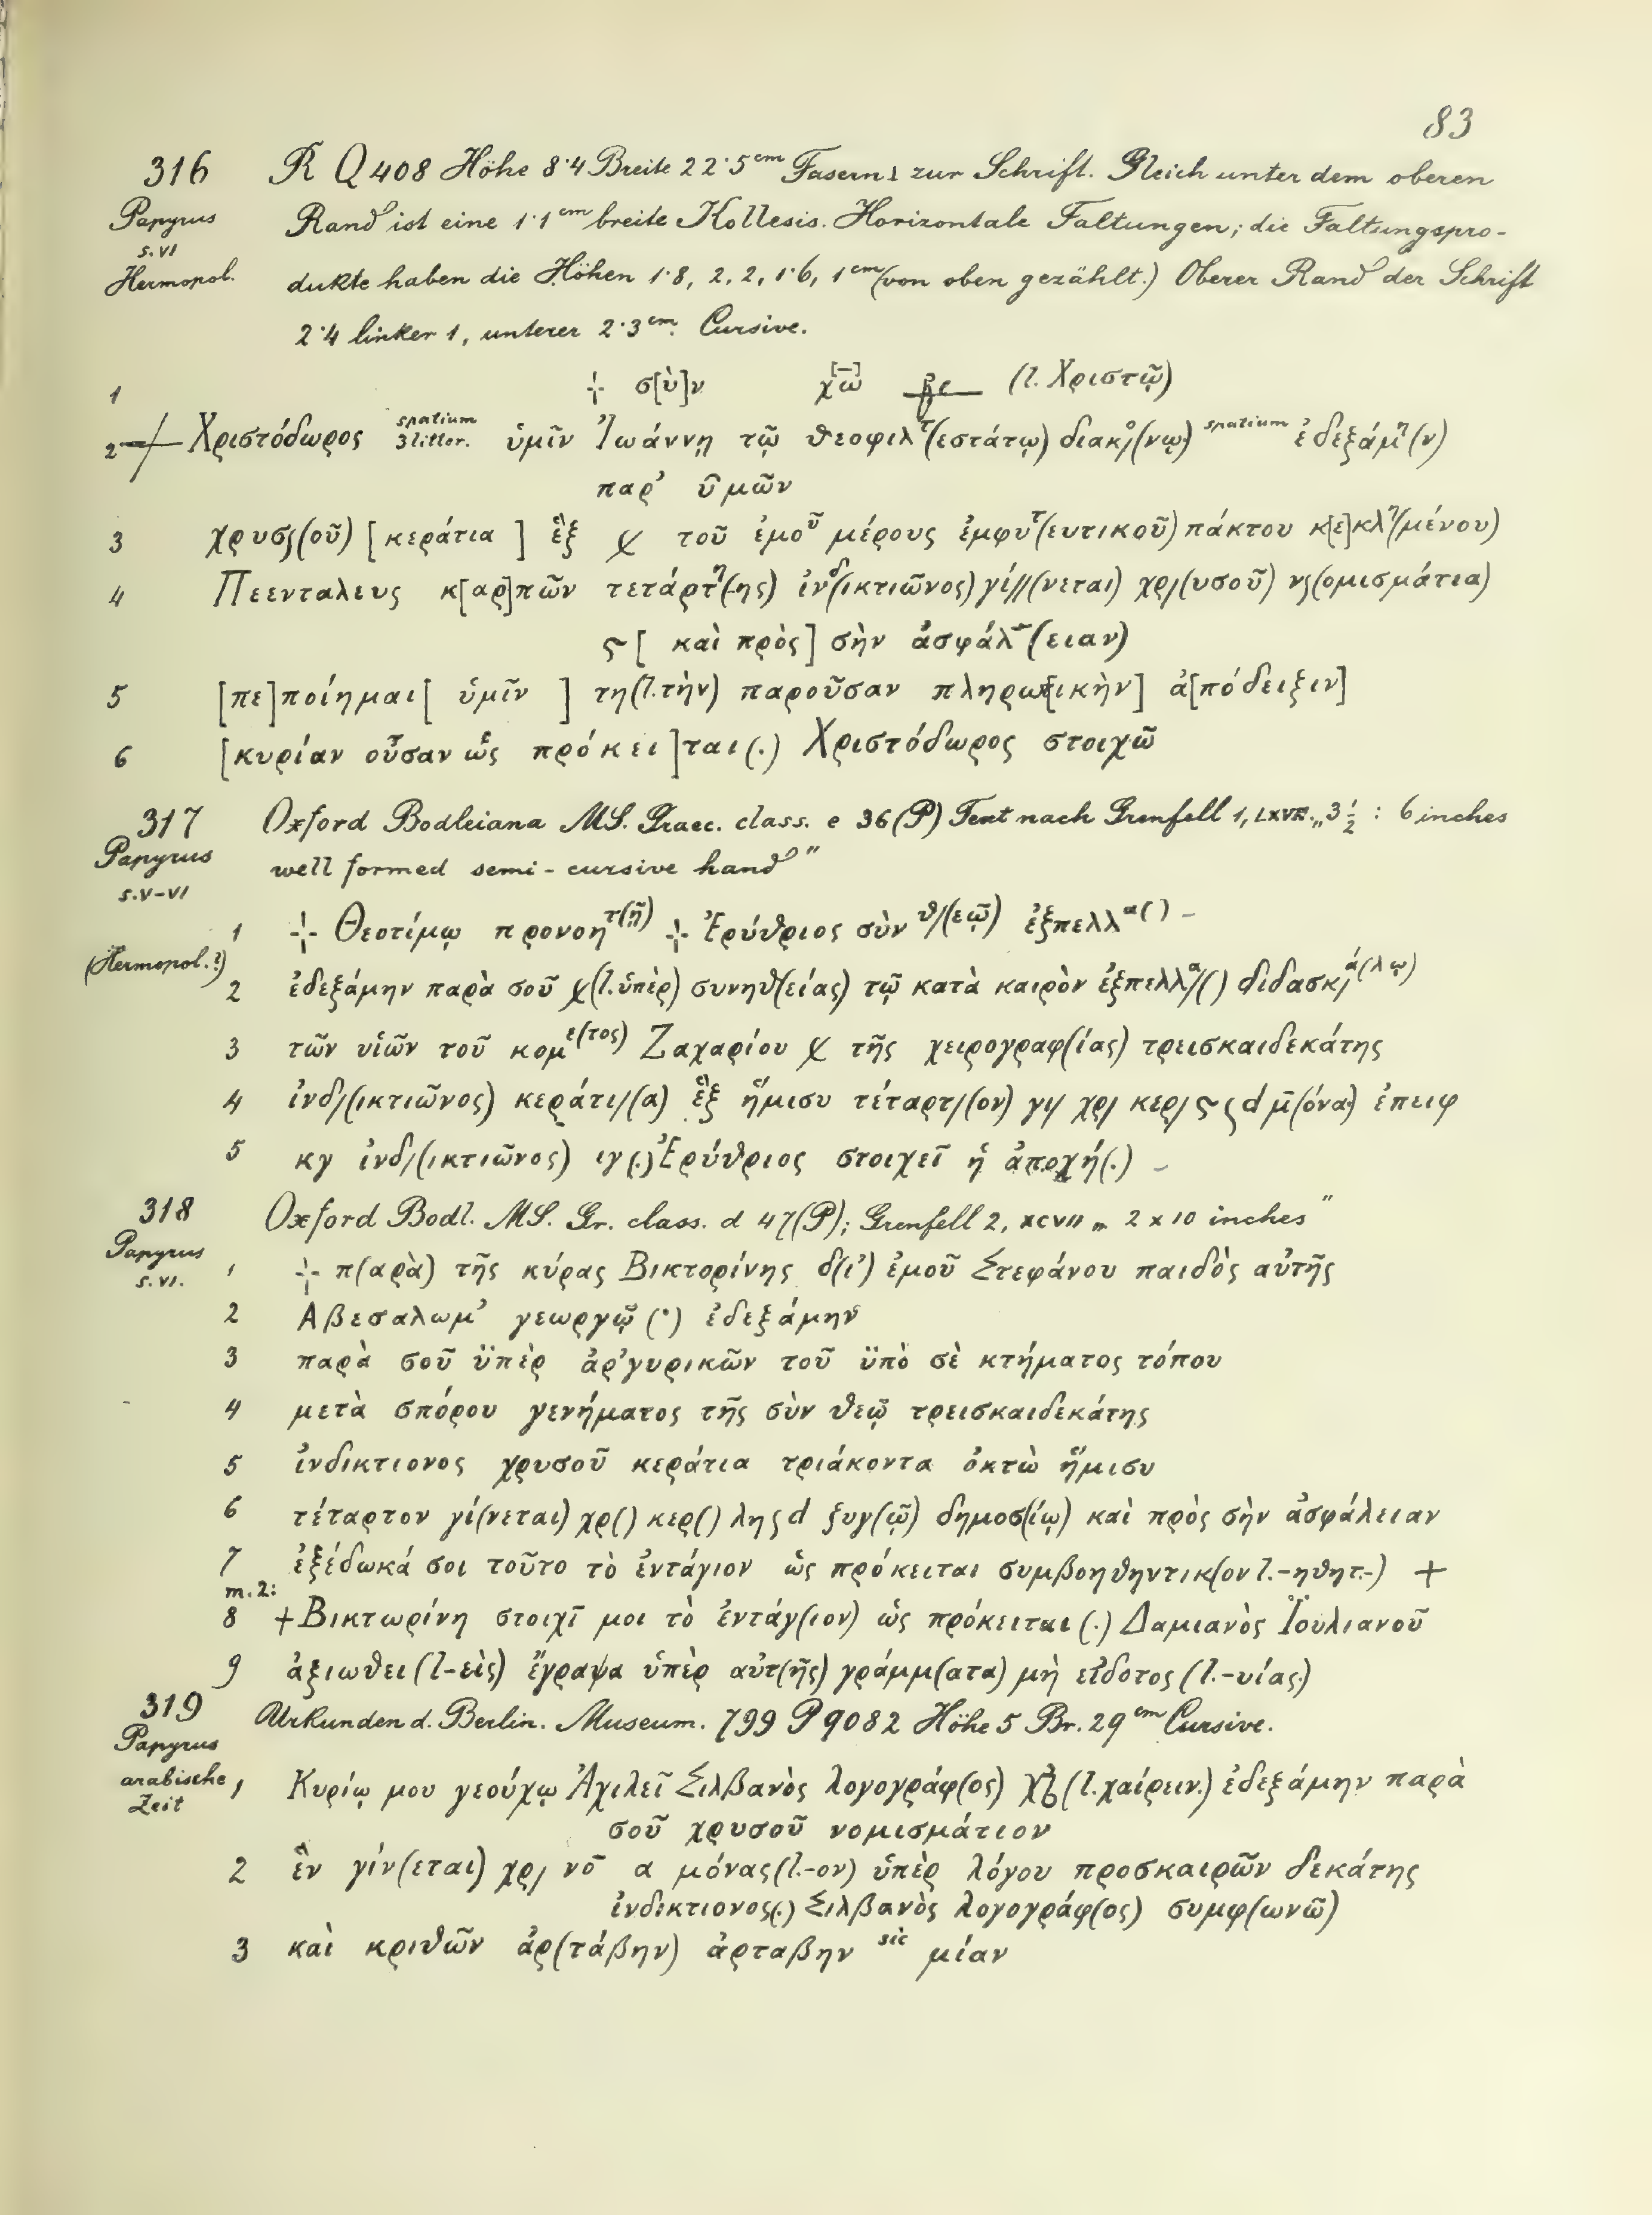 83
316 R Q 408 Höhe 8·4 Breite 22·5 cm Fasern ⊥ zur Schrift. Gleich unter dem oberen
Papyrus Rand ist eine 1·1 cm breite Kollesis. Horizontale Faltungen; die Faltungspro-
s. VI
Hermopol. dukte haben die Höhen 1·8, 2, 2, 1·6, 1 cm (von oben gezählt.) Oberer Rand der Schrift
2·4 linker 1, unterer 2·3 cm. Cursive.
1 ⳨ σ[ὺ]ν χω (l. Χριστῷ)
2 Χριστόδωρος spatium 3 litter. ὑμῖν Ἰωάννῃ τῷ θεοφιλτ(εστάτῳ) διακο/(νῳ) spatium ἐδεξάμη(ν)
παρ’ ὑμῶν
3 χρυσ/(οῦ) [κεράτια] ἓξ χ τοῦ ἐμοῦ μέρους ἐμφυτ(ευτικοῦ) πάκτου κ[ε]κλη(μένου)
4 Πεενταλευς κ[αρ]πῶν τετάρτη(-ης) ἰνδ(ικτιῶνος) γί//(νεται) χρ/(υσοῦ) νς(ομισμάτια)
ϛ [καὶ πρὸς] σὴν ἀσφάλ(ειαν)
5 [πε]ποίημαι [ὑμῖν] τη(l. τὴν) παροῦσαν πληρω[τικὴν] ἀ[πόδειξιν]
6 [κυρίαν οὖσαν ὡς πρόκει]ται(.) Χριστόδωρος στοιχῶ
317 Oxford Bodleiana MS. Graec. class. e 36 (P) Text nach Grenfell 1, LXVII. „3 1/2 : 6 inches
Papyrus well formed semi-cursive hand”
s. V-VI
1 ⳨ Θεοτίμῳ προνοητ(ῇ) ⳨ Ἐρύθριος σὺν θ/(εῷ) ἐξπελλα( ) –
(Hermopol.?)
2 ἐδεξάμην παρὰ σοῦ χ(l. ὑπὲρ) συνηθ(είας) τῷ κατὰ καιρὸν ἐξπελλα/( ) διδασκ/ά(λῳ)
3 τῶν υἱῶν τοῦ κομε(τος) Ζαχαρίου χ τῆς χειρογραφ(ίας) τρεισκαιδεκάτης
4 ἰνδ/(ικτιῶνος) κεράτι/(α) ἓξ ἥμισυ τέταρτ/(ον) γι/ χρ/ κερ/ ϛ ς d μ̄(όνα) ἐπειφ
5 κγ ἰνδ/(ικτιῶνος) ιγ(.) Ἐρύθριος στοιχεῖ ἡ ἀποχή(.) –
318 Oxford Bodl. MS. Gr. class. d 47 (P); Grenfell 2, XCVII „ 2 x 10 inches”
Papyrus
s. VI.
1 ⳨ π(αρὰ) τῆς κύρας Βικτορίνης δ(ι’) ἐμοῦ Στεφάνου παιδὸς αὐτῆς
2 Αβεσαλωμ’ γεωργῷ (·) ἐδεξάμην
3 παρὰ σοῦ ϋπὲρ ἀρ’γυρικῶν τοῦ ϋπὸ σὲ κτήματος τόπου
4 μετὰ σπόρου γενήματος τῆς σὺν θεῷ τρεισκαιδεκάτης
5 ἰνδικτιονος χρυσοῦ κεράτια τριάκοντα ὀκτὼ ἥμισυ
6 τέταρτον γί(νεται) χρ( ) κερ( ) λη ς d ζυγ(ῷ) δημοσ(ίῳ) καὶ πρὸς σὴν ἀσφάλειαν
7 ἐξέδωκά σοι τοῦτο τὸ ἐντάγιον ὡς πρόκειται συμβοηθηντικ(ον l. -ηθητ-) +
m. 2:
8 + Βικτωρίνη στοιχῖ μοι τὸ ἐντάγ(ιον) ὡς πρόκειται (.) Δαμιανὸς Ϊουλιανοῦ
9 ἀξιωθει (l -εὶς) ἔγραψα ὑπὲρ αὐτ(ῆς) γράμμ(ατα) μὴ εἰδοτος (l. -υίας)
319 Urkunden d. Berlin. Museum. 799 P 9082 Höhe 5 Br. 29 cm Cursive.
Papyrus
arabische Zeit
1 Κυρίῳ μου γεούχῳ Ἀχιλεῖ Σιλβανὸς λογογράφ(ος) (l. χαίρειν.) ἐδεξάμην παρὰ
σοῦ χρυσοῦ νομισμάτιον
2 ἓν γίν(εται) χρ/ νο̄ α μόνας (l. -ον) ὑπὲρ λόγου προσκαιρῶν δεκάτης
ἰνδικτιονος(.) Σιλβανὸς λογογράφ(ος) συμφ(ωνῶ)
3 καὶ κριθῶν ἀρ(τάβην) ἀρταβην sic μίαν